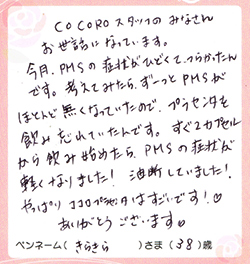 COCOROスタッフのみなさん
お世話になっています。
今月、PMSの症状がひどくて、つらかったん
です。考えてみたら、ずーっとPMSが
ほとんど無くなっていたので、プラセンタを
飲み忘れていたんです。すぐ2カプセル
から飲み始めたら、PMSの症状が
軽くなりました！油断していました！
やっぱりココロプラセンタはすごいです！♡
ありがとうございます。
ペンネーム(きらきら)さま(38)歳